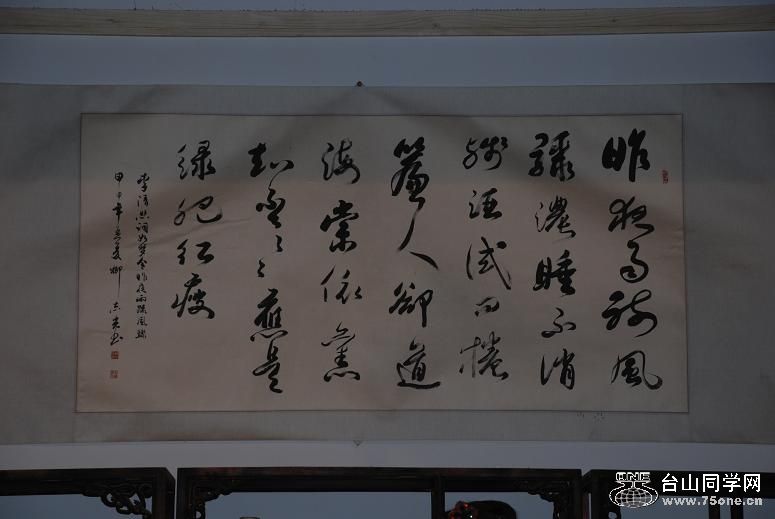 昨夜雨疏風
驟濃睡不消
殘酒試問捲
簾人卻道
海棠依舊
知否〻〻應是
绿肥红瘦
李清照詞如夢令昨夜雨疏風驟
甲申年夏柳書
ONE
台山同学网
www.75one.cn